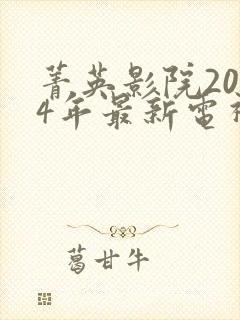 菁英影院20
4年最新電
葛甘牛